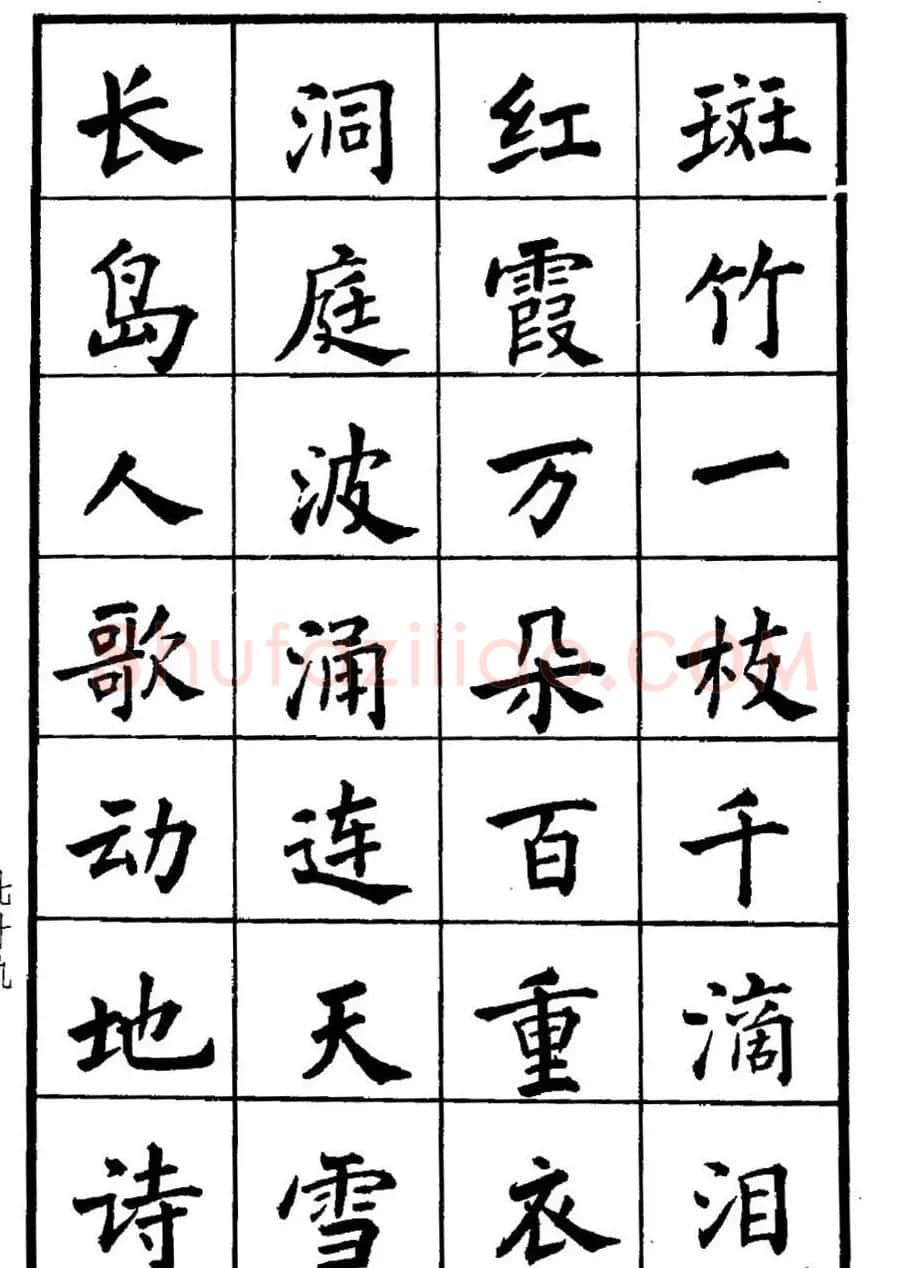 斑竹一枝千滴泪
红霞万朵百重衣
洞庭波涌连天雪
长岛人歌动地诗
七十九
Shufaziliao.COM